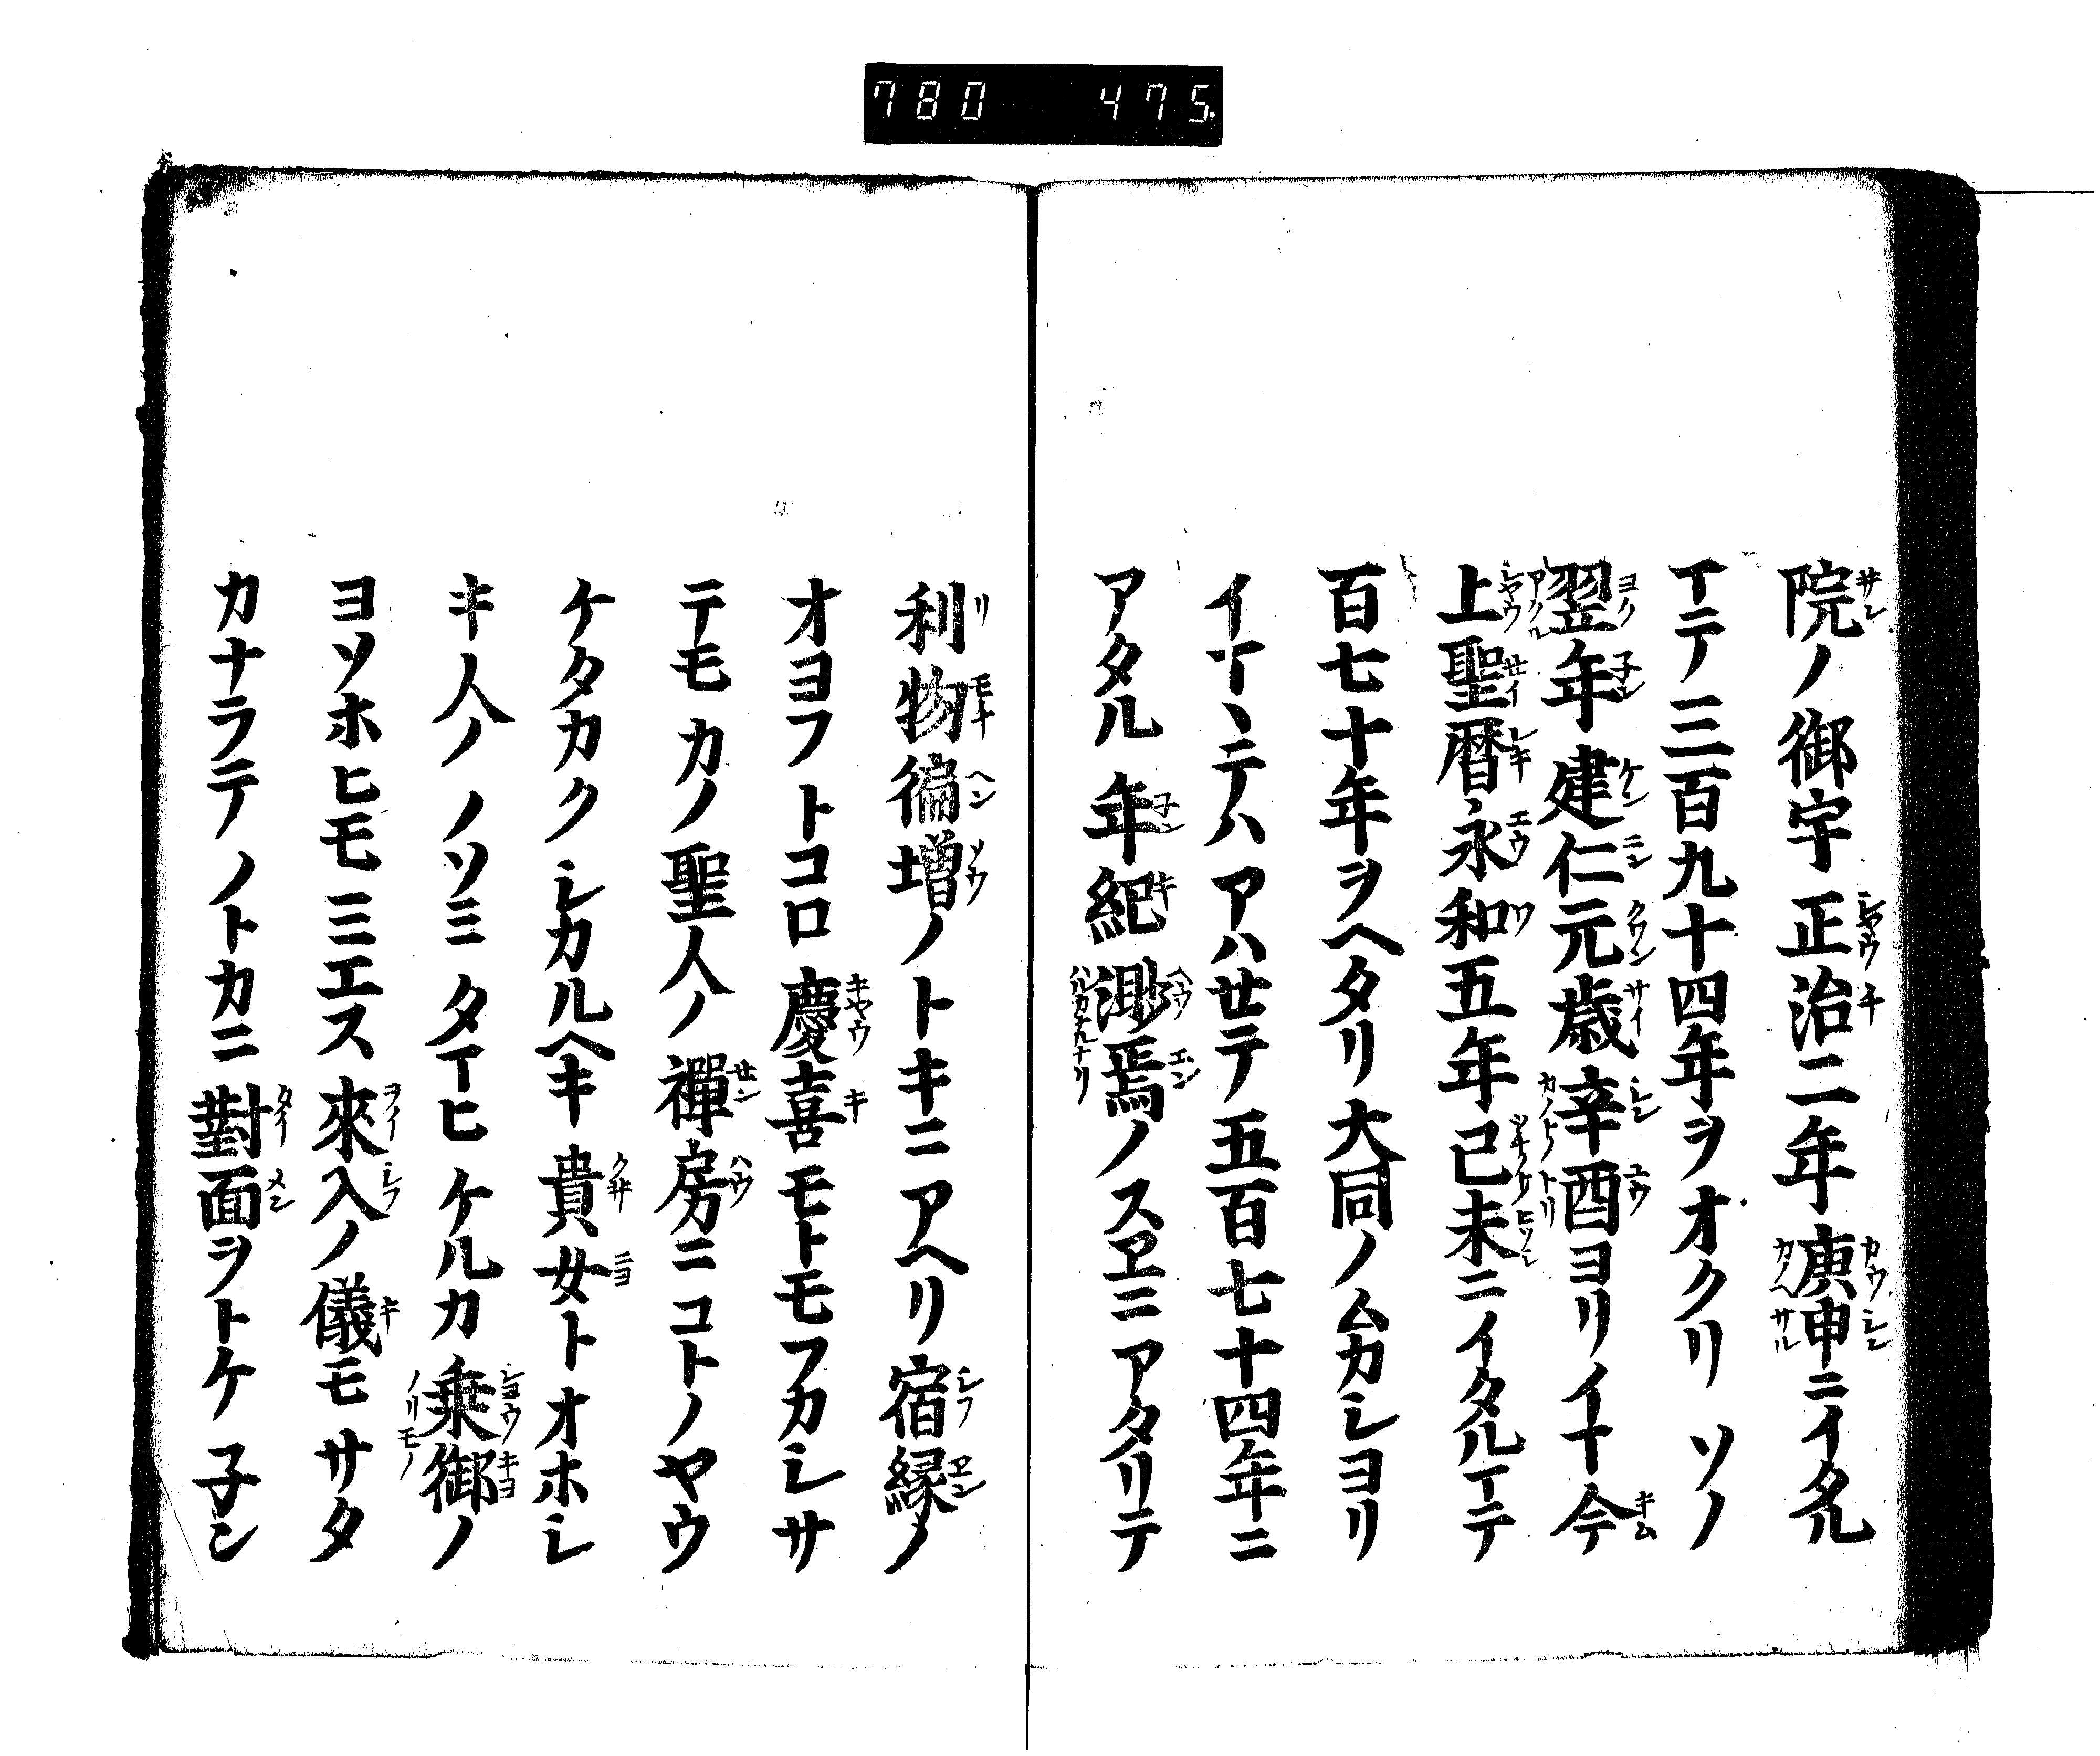 780 475
院ノ御宇正治二年庚申ニイタル
マテ三百九十四年ヲオクリソノ
翌年建仁元歳辛酉ヨリイマ今
上聖暦永和五年己未ニイタルマテ
百七十年ヲヘタリ大同ノムカシヨリ
イマヽテハアハセテ五百七十四年ニ
アタル年紀渺焉ノスヱニアタリテ
利物徧増ノトキニアヘリ宿縁ノ
オヨフトコロ慶喜モトモフカシサ
テモカノ聖人ノ禪房ニコトノヤウ
ケタカクシカルヘキ貴女トオホシ
キ人ノノソミタマヒケルカ乗御ノ
ヨソホヒモミエス來入ノ儀モサタ
カナラテノトカニ對面ヲトケ子ン